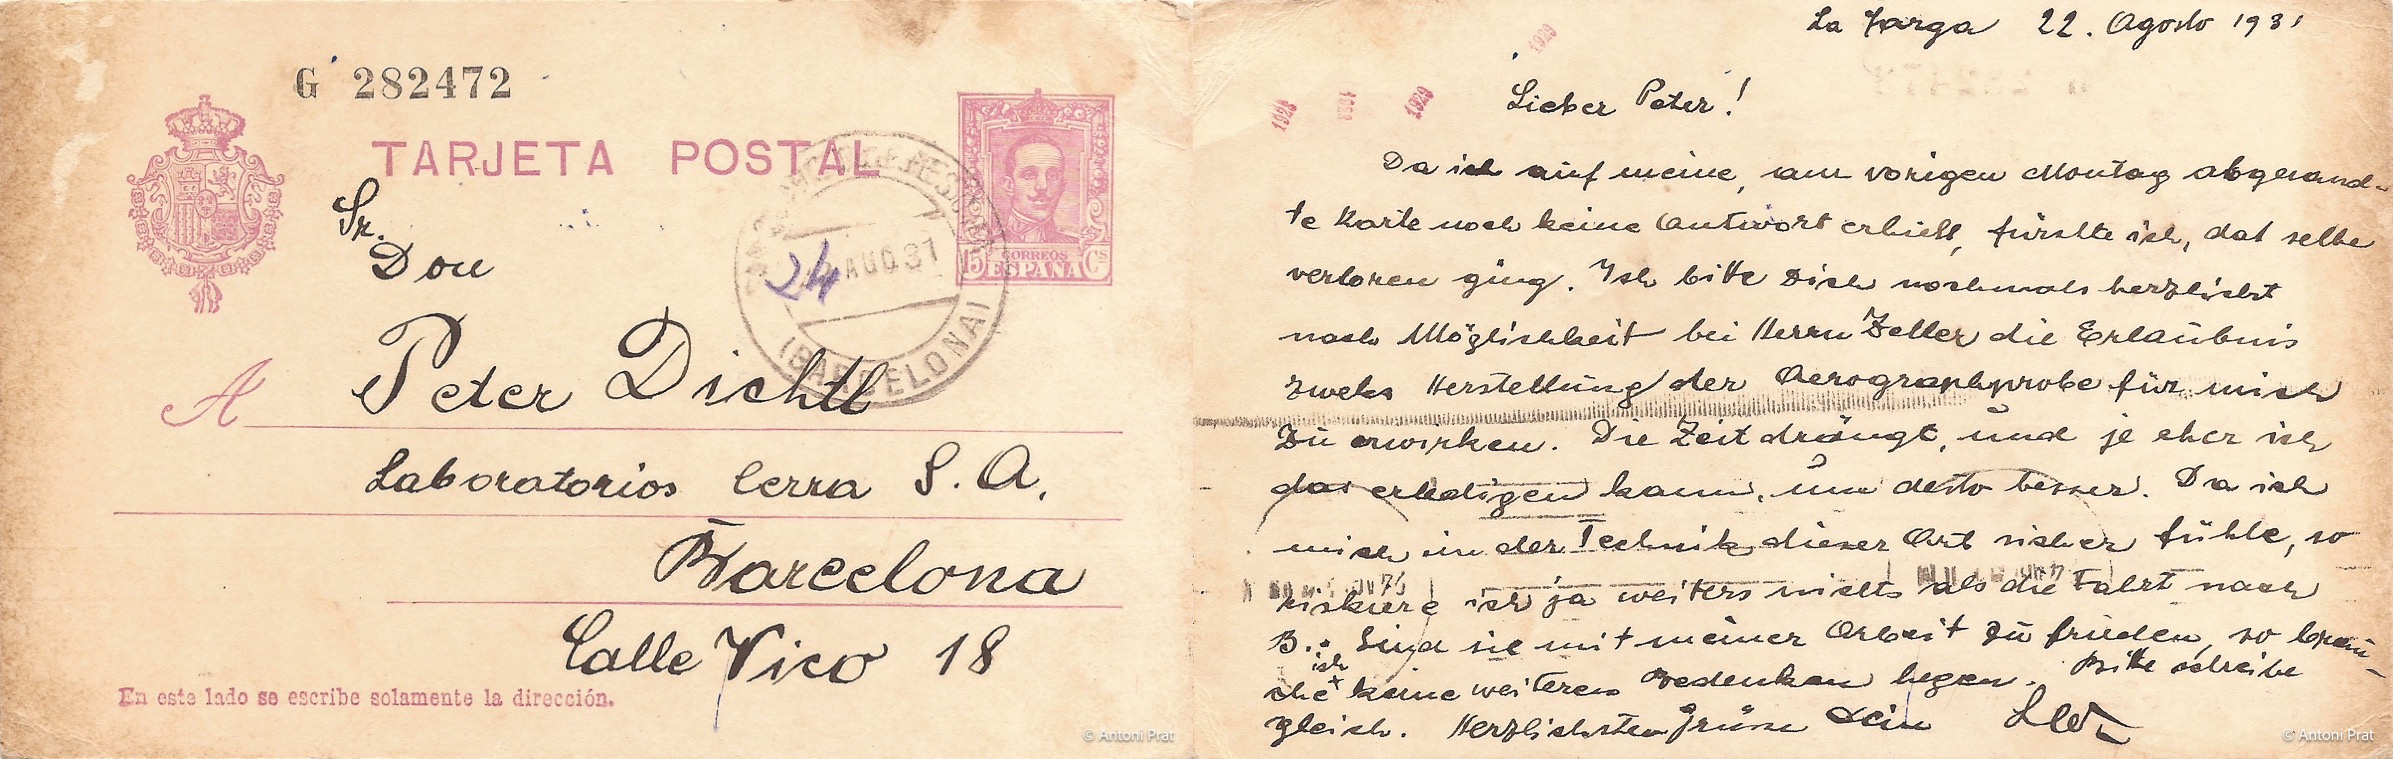 G 282472
TARJETA POSTAL
Sr.
Don
Peter Dichtl
A
Laboratorios Cerra S. A.
Barcelona
Calle Vico 18
En este lado se escribe solamente la dirección.
CORREOS
15 ESPAÑA Cs
24 AUG 31
(BARCELONA)
© Antoni Prat
La Farga 22. Agosto 1931
1929
1928
1931
1929
Lieber Peter!
Da ich auf meine, am vorigen Montag abgesand-
te Karte noch keine Antwort erhielt, fürchte ich, dat selbe
verloren ging. Ich bitte Dich nochmals herzlichst
nach Möglichkeit bei Herrn Zeller die Erlaubnis
zweks Herstellung der Aerographprobe für mich
zu erwirken. Die Zeit drängt, und je eher ich
das erledigen kann, um desto besser. Da ich
mich in der Technik dieser Art sicher fühle, so
riskiere ich ja weiters nichts als die Fahrt nach
B.. Sind sie mit meiner Arbeit zu frieden, so brau-
che ich keine weiteren Bedenken hegen. Bitte schreibe
gleich. Herzlichsten Grüsse Dein
© Antoni Prat